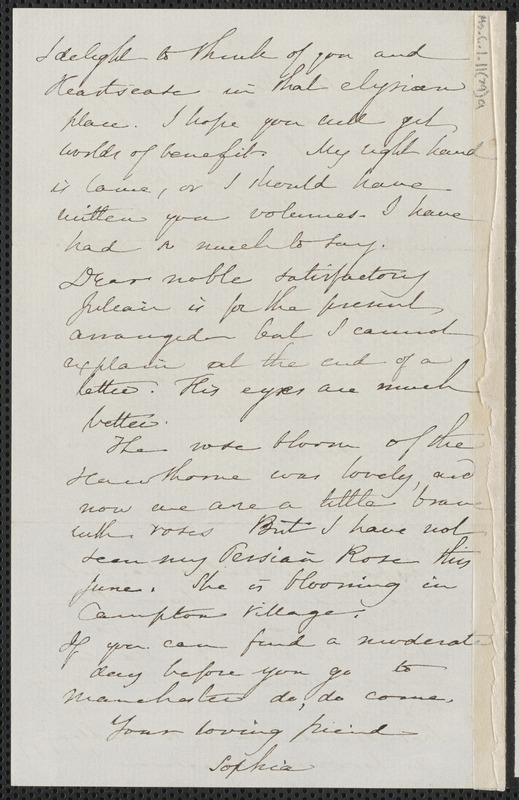 I delight to think of you and
Heartsease in that elysian
place. I hope you will get
worlds of benefit. My right hand
is lame, or I should have
written you volumes. I have
had so much to say.
Dear noble satisfactory
Julian is for the present
arranged but I cannot
explain at the end of a
letter. His eyes are much
better.
The rose bloom of the
Hawthorne was lovely, and
now we are a little brave
with roses But I have not
seen my Persian Rose this
June. She is blooming in
Campton Village.
If you can find a moderate
day before you go to
Manchester do, do come.
Your loving friend
Sophia